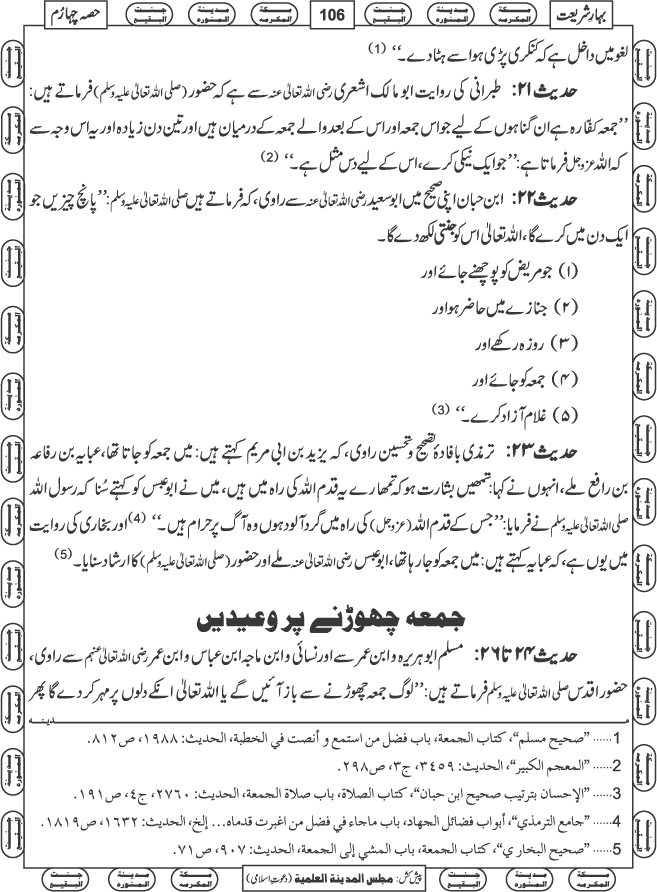 بہارِ شریعت
106
حصہ چہارم
لغو میں داخل ہے کہ کنکری پڑی ہو اسے ہٹا دے۔‘‘ (1)
حدیث ۲۱: طبرانی کی روایت ابو مالک اشعری رضی اللہ تعالیٰ عنہ سے ہے کہ حضور (صلی اللہ تعالیٰ علیہ وسلم) فرماتے ہیں:
’’جمعہ کفارہ ہے ان گناہوں کے لیے جو اس جمعہ اور اس کے بعد والے جمعہ کے درمیان ہیں اور تین دن زیادہ اور یہ اس وجہ سے
کہ اللہ عزوجل فرماتا ہے: ’’جو ایک نیکی کرے، اس کے لیے دس مثل ہے۔‘‘ (2)
حدیث ۲۲: ابن حبان اپنی صحیح میں ابو سعید رضی اللہ تعالیٰ عنہ سے راوی، کہ فرماتے ہیں صلی اللہ تعالیٰ علیہ وسلم: ’’پانچ چیزیں جو
ایک دن میں کرے گا، اللہ تعالیٰ اس کو جنتی لکھ دے گا۔
(۱) جو مریض کو پوچھنے جائے اور
(۲) جنازے میں حاضر ہو اور
(۳) روزہ رکھے اور
(۴) جمعہ کو جائے اور
(۵) غلام آزاد کرے۔‘‘ (3)
حدیث ۲۳: ترمذی بافادۂ تصحیح و تحسین راوی، کہ یزید بن ابی مریم کہتے ہیں: میں جمعہ کو جاتا تھا، عبایہ بن رفاعہ
بن رافع ملے، انہوں نے کہا: تمھیں بشارت ہو کہ تمھارے یہ قدم اللہ کی راہ میں ہیں، میں نے ابو عبس کو کہتے سُنا کہ رسول اللہ
صلی اللہ تعالیٰ علیہ وسلم نے فرمایا: ’’جس کے قدم اللہ (عزوجل) کی راہ میں گرد آلود ہوں وہ آگ پر حرام ہیں۔‘‘ (4) اور بخاری کی روایت
میں یوں ہے، کہ عبایہ کہتے ہیں: میں جمعہ کو جا رہا تھا، ابو عبس رضی اللہ تعالیٰ عنہ ملے اور حضور (صلی اللہ تعالیٰ علیہ وسلم) کا ارشاد سنایا۔ (5)
جمعہ چھوڑنے پر وعیدیں
حدیث ۲۴ تا ۲۶: مسلم ابوہریرہ و ابن عمر سے اور نسائی و ابن ماجہ ابن عباس و ابن عمر رضی اللہ تعالیٰ عنہم سے راوی،
حضور اقدس صلی اللہ تعالیٰ علیہ وسلم فرماتے ہیں: ’’لوگ جمعہ چھوڑنے سے باز آئیں گے یا اللہ تعالیٰ انکے دلوں پر مہر کر دے گا پھر
مدینہ
1...... ”صحيح مسلم“، كتاب الجمعة، باب فضل من استمع و أنصت في الخطبة، الحديث: ۱۹۸۸، ص۸۱۲.
2...... ”المعجم الكبير“، الحديث: ۳٤٥۹، ج۳، ص۲۹۸.
3...... ”الإحسان بترتيب صحيح ابن حبان“، كتاب الصلاة، باب صلاة الجمعة، الحديث: ۲۷٦۰، ج٤، ص۱۹۱.
4...... ”جامع الترمذي“، أبواب فضائل الجهاد، باب ماجاء في فضل من اغبرت قدماه... إلخ، الحديث: ۱٦۳۲، ص۱۸۱۹.
5...... ”صحيح البخاري“، كتاب الجمعة، باب المشي إلى الجمعة، الحديث: ۹۰۷، ص۷۱.
پیش کش: مجلس المدينة العلمية (دعوتِ اسلامی)